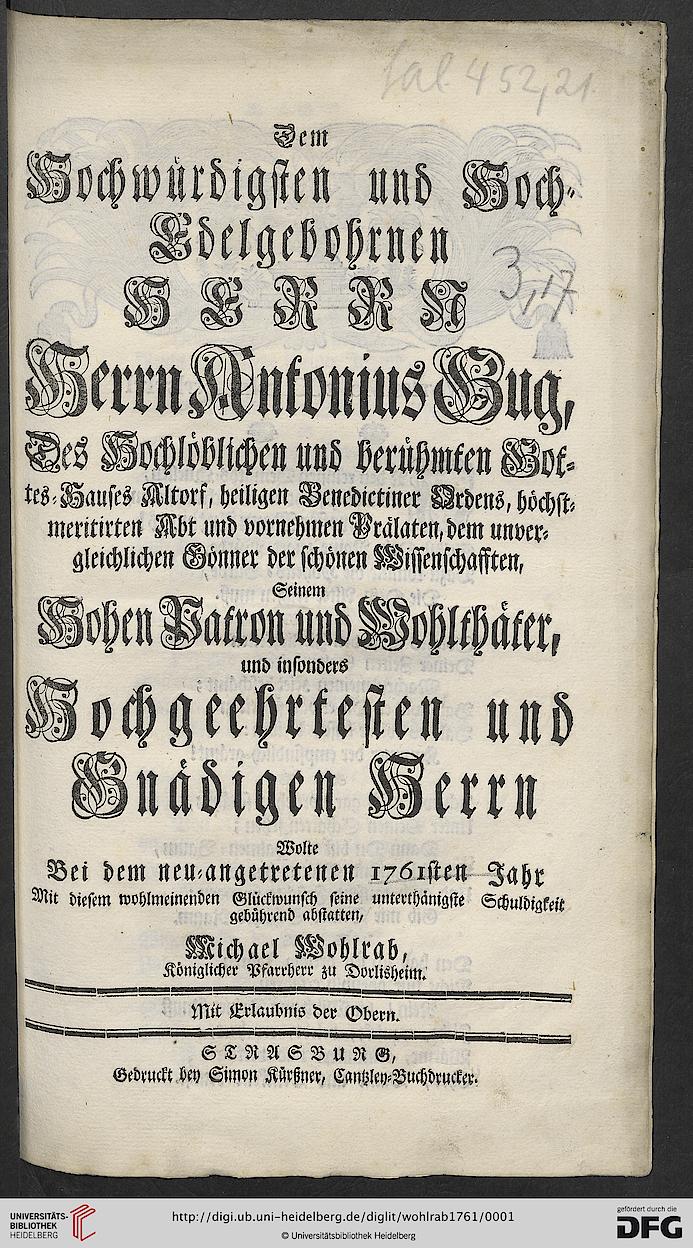 Sal. 452,21.
Dem
Hochwürdigsten und Hoch-
Edelgebohrnen
HERRN
3,17
Herrn Antonius Gug,
Des Hochlöblichen und berühmten Got-
tes-Hauses Altorf, heiligen Benedictiner Ordens, höchst-
meritirten Abt und vornehmen Prälaten, dem unver-
gleichlichen Gönner der schönen Wissenschafften,
Seinem
Hohen Patron und Wohlthäter,
und insonders
Hochgeehrtesten und
Gnädigen Herrn
Wolte
Bei dem neu-angetretenen 1761sten Jahr
Mit diesem wohlmeinenden Glückwunsch seine unterthänigste Schuldigkeit
gebührend abstatten,
Michael Wohlrab,
Königlicher Pfarrherr zu Dorlisheim.
Mit Erlaubnis der Obern.
STRASBURG,
Gedruckt bey Simon Kürßner, Cantzley-Buchdrucker.
UNIVERSITÄTS-
BIBLIOTHEK
HEIDELBERG
http://digi.ub.uni-heidelberg.de/diglit/wohlrab1761/0001
© Universitätsbibliothek Heidelberg
gefördert durch die
DFG